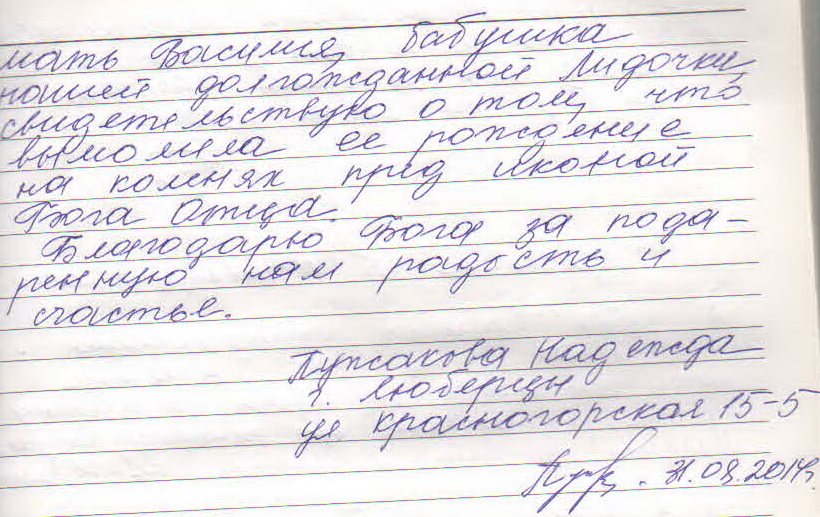 мать Василия, бабушка
нашей долгожданной Лидочки,
свидетельствую о том, что
вымолила ее рождение
на коленях пред Иконой
Бога Отца.
Благодарю Бога за пода-
ренную нам радость и
счастье.
Пужакова Надежда
г. Люберцы
ул Красногорская 15-5
31.08.2014г.